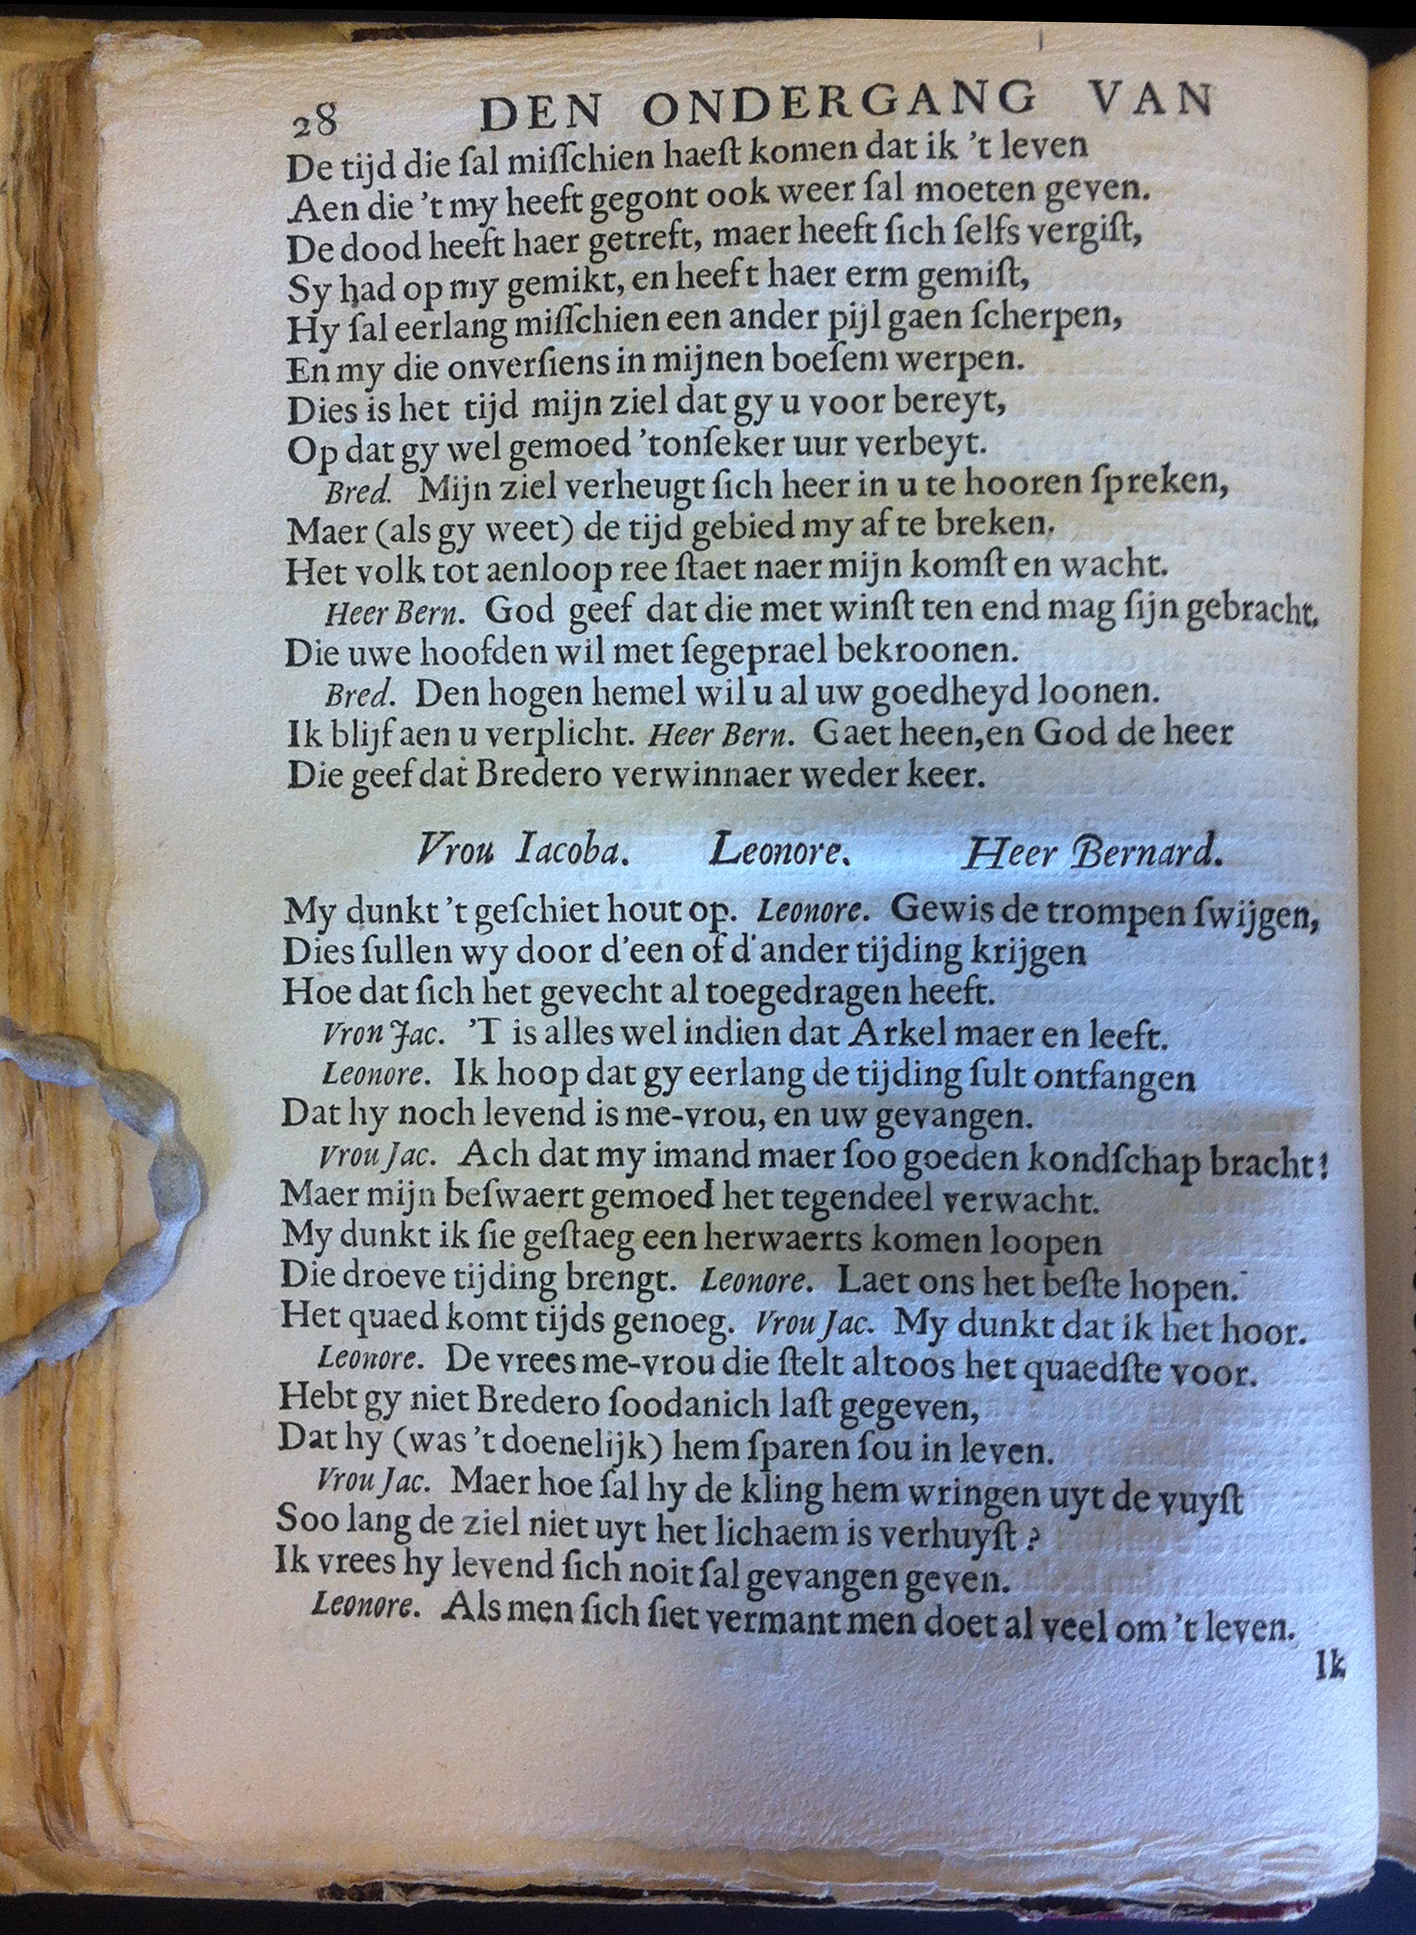 28 DEN ONDERGANG VAN
De tijd die ſal miſſchien haeſt komen dat ik 't leven
Aen die 't my heeft gegont ook weer ſal moeten geven.
De dood heeft haer getreft, maer heeft ſich ſelfs vergiſt,
Sy had op my gemikt, en heeft haer erm gemiſt,
Hy ſal eerlang miſſchien een ander pijl gaen ſcherpen,
En my die onverſiens in mijnen boeſem werpen.
Dies is het tijd mijn ziel dat gy u voor bereyt,
Op dat gy wel gemoed 'tonſeker uur verbeyt.
Bred. Mijn ziel verheugt ſich heer in u te hooren ſpreken,
Maer (als gy weet) de tijd gebied my af te breken.
Het volk tot aenloop ree ſtaet naer mijn komſt en wacht.
Heer Bern. God geef dat die met winſt ten end mag ſijn gebracht.
Die uwe hoofden wil met ſegeprael bekroonen.
Bred. Den hogen hemel wil u al uw goedheyd loonen.
Ik blijf aen u verplicht. Heer Bern. Gaet heen, en God de heer
Die geef dat Bredero verwinnaer weder keer.
Vrou Iacoba. Leonore. Heer Bernard.
My dunkt 't geſchiet hout op. Leonore. Gewis de trompen ſwijgen,
Dies ſullen wy door d'een of d'ander tijding krijgen
Hoe dat ſich het gevecht al toegedragen heeft.
Vron Jac. 'T is alles wel indien dat Arkel maer en leeft.
Leonore. Ik hoop dat gy eerlang de tijding ſult ontfangen
Dat hy noch levend is me-vrou, en uw gevangen.
Vrou Jac. Ach dat my imand maer ſoo goeden kondſchap bracht!
Maer mijn beſwaert gemoed het tegendeel verwacht.
My dunkt ik ſie geſtaeg een herwaerts komen loopen
Die droeve tijding brengt. Leonore. Laet ons het beſte hopen.
Het quaed komt tijds genoeg. Vrou Jac. My dunkt dat ik het hoor.
Leonore. De vrees me-vrou die ſtelt altoos het quaedſte voor.
Hebt gy niet Bredero ſoodanich laſt gegeven,
Dat hy (was 't doenelijk) hem ſparen ſou in leven.
Vrou Jac. Maer hoe ſal hy de kling hem wringen uyt de vuyſt
Soo lang de ziel niet uyt het lichaem is verhuyſt?
Ik vrees hy levend ſich noit ſal gevangen geven.
Leonore. Als men ſich ſiet vermant men doet al veel om 't leven.
Ik